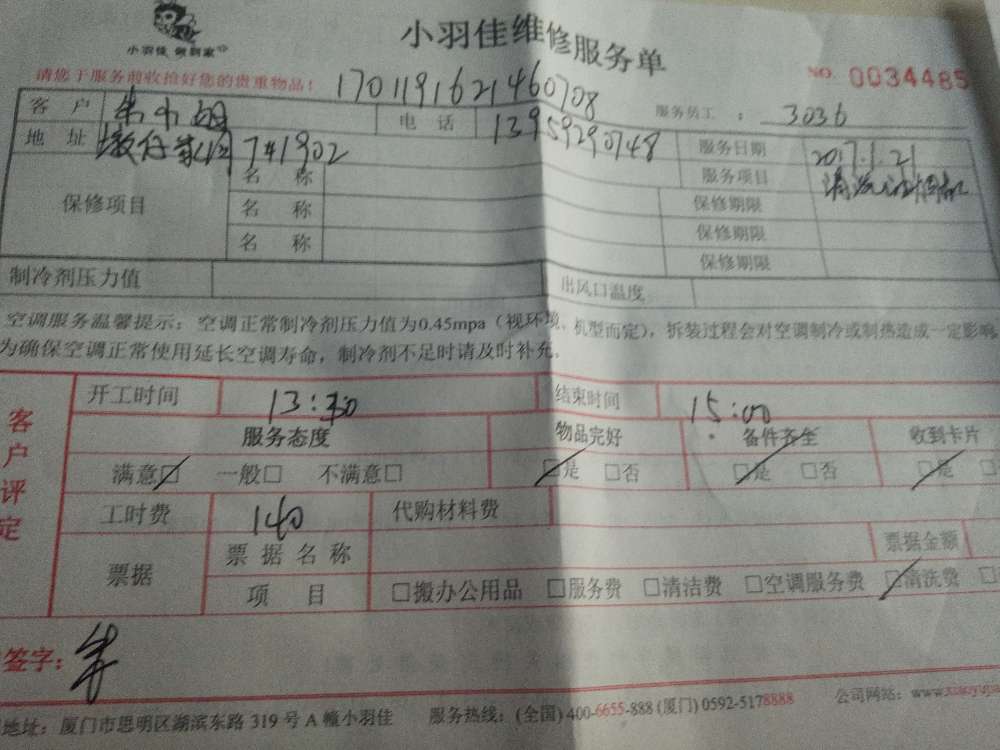 小羽佳 做到家
小羽佳维修服务单
请您于服务前收拾好您的贵重物品!
1701191621460708
NO. 0034485
服务员工 : 3036
客 户
电 话 13959290748
服务日期 2017.1.21
地 址 7#1902
服务项目 清洗油烟机
保修项目
名 称 保修期限
名 称 保修期限
名 称 保修期限
制冷剂压力值 出风口温度
空调服务温馨提示:空调正常制冷剂压力值为0.45mpa(视环境、机型而定),拆装过程会对空调制冷或制热造成一定影响
为确保空调正常使用延长空调寿命,制冷剂不足时请及时补充。
客户评定
开工时间 13:30 结束时间 15:00
服务态度 物品完好 备件齐全 收到卡片
满意☑ 一般□ 不满意□ ☑是 □否 ☑是 □否 ☑是 □
工时费 140 代购材料费
票据 票据名称 票据金额
项 目 □搬办公用品 □服务费 □清洁费 □空调服务费 ☑清洗费 □
签字: 朱
地址:厦门市思明区湖滨东路 319 号 A 幢小羽佳 服务热线:(全国) 400-6655-888 (厦门) 0592-5178888 公司网站:www.xiaoyu